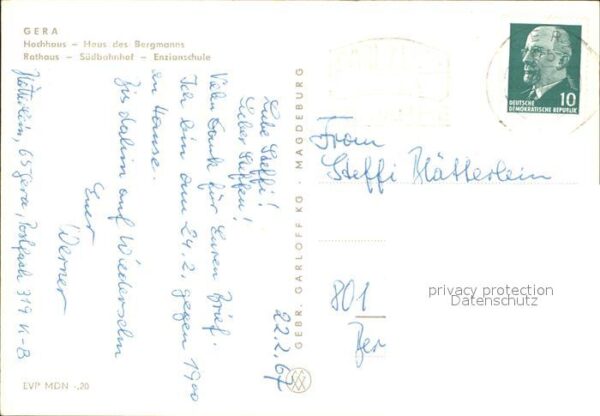 GERA
Hochhaus – Haus des Bergmanns
Rathaus – Südbahnhof – Enzianschule
22.2.67
Liebe Steffi!
Lieber Steffen!
Vielen Dank für Euren Brief.
Ich bin am 24.2. gegen 19⁰⁰
zu Hause.
Bis dahin auf Wiedersehn
Euer
Werner
65 Gera, Postfach 319 K-B
EVP MDN -,20
GEBR. GARLOFF KG · MAGDEBURG
DEUTSCHE
DEMOKRATISCHE REPUBLIK
10
Frau
Steffi Blätterlein
801
privacy protection
Datenschutz